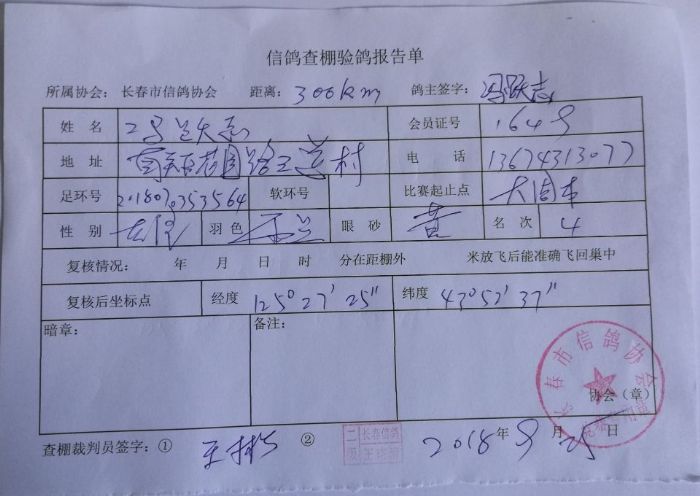 信鸽查棚验鸽报告单
所属协会： 长春市信鸽协会 距离： 300km 鸽主签字： 冯跃志
姓 名 会员证号 164号
地 址 村 电 话 13674313077
足环号 201807353564 软环号 比赛起止点
性 别 羽色 雨兰 眼 砂 黄 名 次 4
复核情况： 年 月 日 时 分在距棚外 米放飞后能准确飞回巢中
复核后坐标点 经度 125° 27' 25" 纬度 43° 52' 37"
暗章： 备注：
长春市信鸽协会
协会（章）
查棚裁判员签字：① 王彬 ② 二级 长春信鸽 2018年 9月 25日